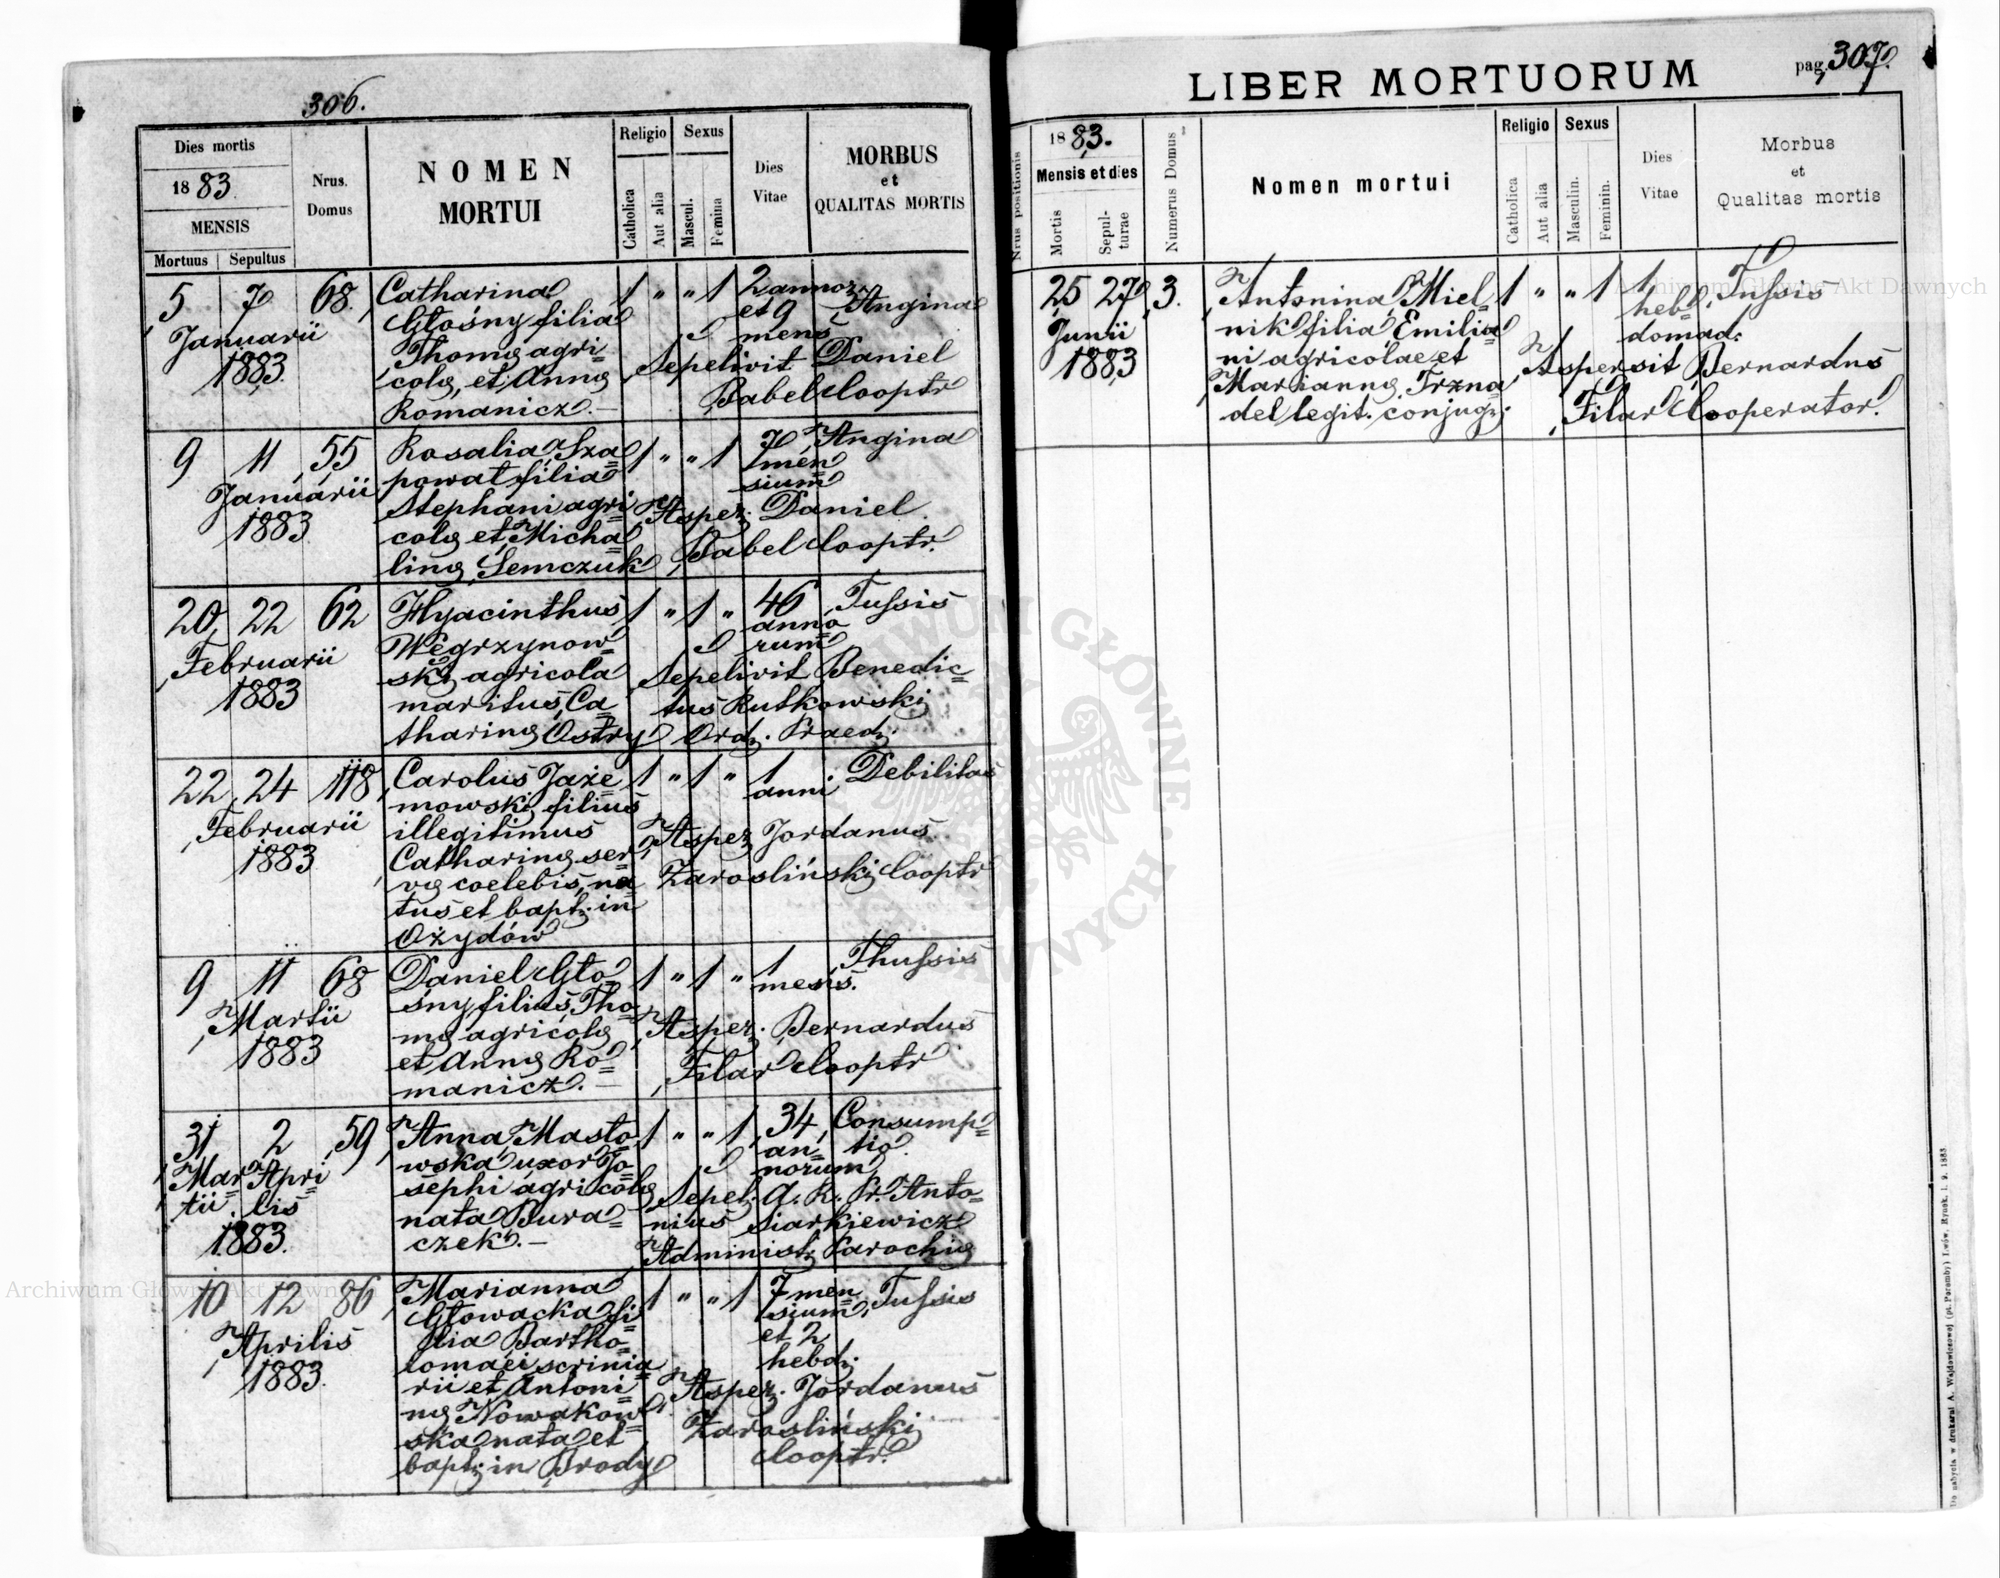 306.
Dies mortis
1883.
MENSIS
Mortuus Sepultus
Nrus.
Domus
NOMEN
MORTUI
Religio
Catholica
Aut alia
Sexus
Mascul.
Femina
Dies
Vitae
MORBUS
et
QUALITAS MORTIS
5 7 68
Januarii
1883.
Catharina
Głośny filia
Thomę agri=
colę, et Annę
Romanicz.—
1 " " 1
2 annor.
et 9
mens
Angina
Sepelivit Daniel
Babel Cooptr
9 11 55
Januarii
1883.
Rosalia Sza=
powat filia
Stephani agri=
colę et Micha=
linę Semczuk
1 " " 1
7
men=
sium
Angina
Asper. Daniel
Babel Cooptr.
20 22 62
Februarii
1883
Hyacinthus
Węgrzynow=
ski agricola
maritus Ca=
tharinę Ostry
1 " 1 "
46
anno=
rum
Tussis
Sepelivit Benedic=
tus Rutkowski
Ord. Praed.
22 24 118
Februarii
1883
Carolus Jaże=
mowski filius
illegitimus
Catharinę ser=
vę coelebis, na=
tus et bapt. in
Ożydów
1 " 1 "
1
anni
Debilitas
Asper. Jordanus
Zarosliński Cooptr
9 11 68
Martii
1883
Daniel Gło=
śny filius Tho=
mę agricolę
et Annę Ro=
manicz.—
1 " 1 "
1
mesis.
Thussis
Asper. Bernardus
Filar Cooptr
31 2 59
Mar= Apri=
tii. lis
1883.
Anna Masło=
wska uxor Jo=
sephi agricolę
nata Bura=
czek.—
1 " " 1
34
an=
norum
Consump=
tio.
Sepel. A. R. Pr. Anto=
nius Siarkiewicz
Administr. Parochię
10 12 86
Aprilis
1883.
Marianna
Głowacka fi=
lia Bartho=
lomaei scrinia=
rii et Antoni=
nę Nowakow=
ska nata et
bapt. in Brody
1 " " 1
7 men=
sium
et 2
hebd.
Tussis
Asper. Jordanus
Zarosliński
Cooptr.
LIBER MORTUORUM
pag. 307.
Nrus positionis
1883.
Mensis et dies
Mortis
Sepul-
turae
Numerus Domus
Nomen mortui
Religio
Catholica
Aut alia
Sexus
Masculin.
Feminin.
Dies
Vitae
Morbus
et
Qualitas mortis
25 27 3.
Junii
1883
Antonina Miel=
nik filia Emilia=
ni agricolae et
Mariannę Trzna=
del legit. conjug.
1 " " 1
1
heb=
domad.
Tussis
Aspersit Bernardus
Filar Cooperator.
Archiwum Główne Akt Dawnych
Archiwum Główne Akt Dawnych
Do nabycia w drukarni A. Wajdowiczowej (pt. Poremby) Lwów, Rynek, l. 9. 1883.